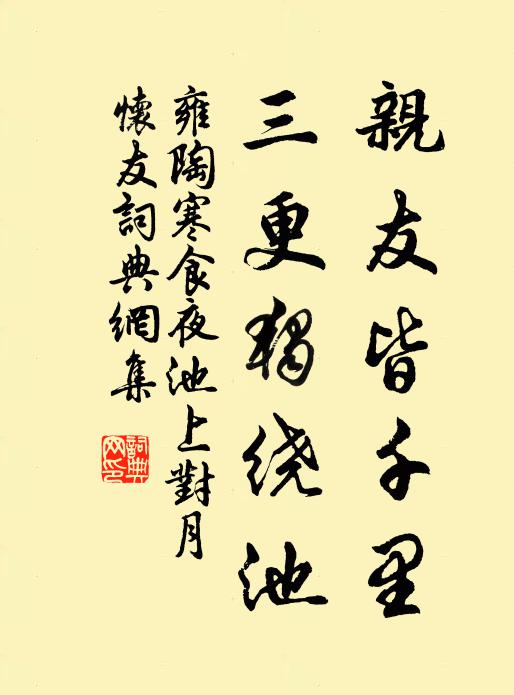 親友皆千里
三更獨绕池
雍陶寒食夜池上對月
懷友詞典網集
詞典网印